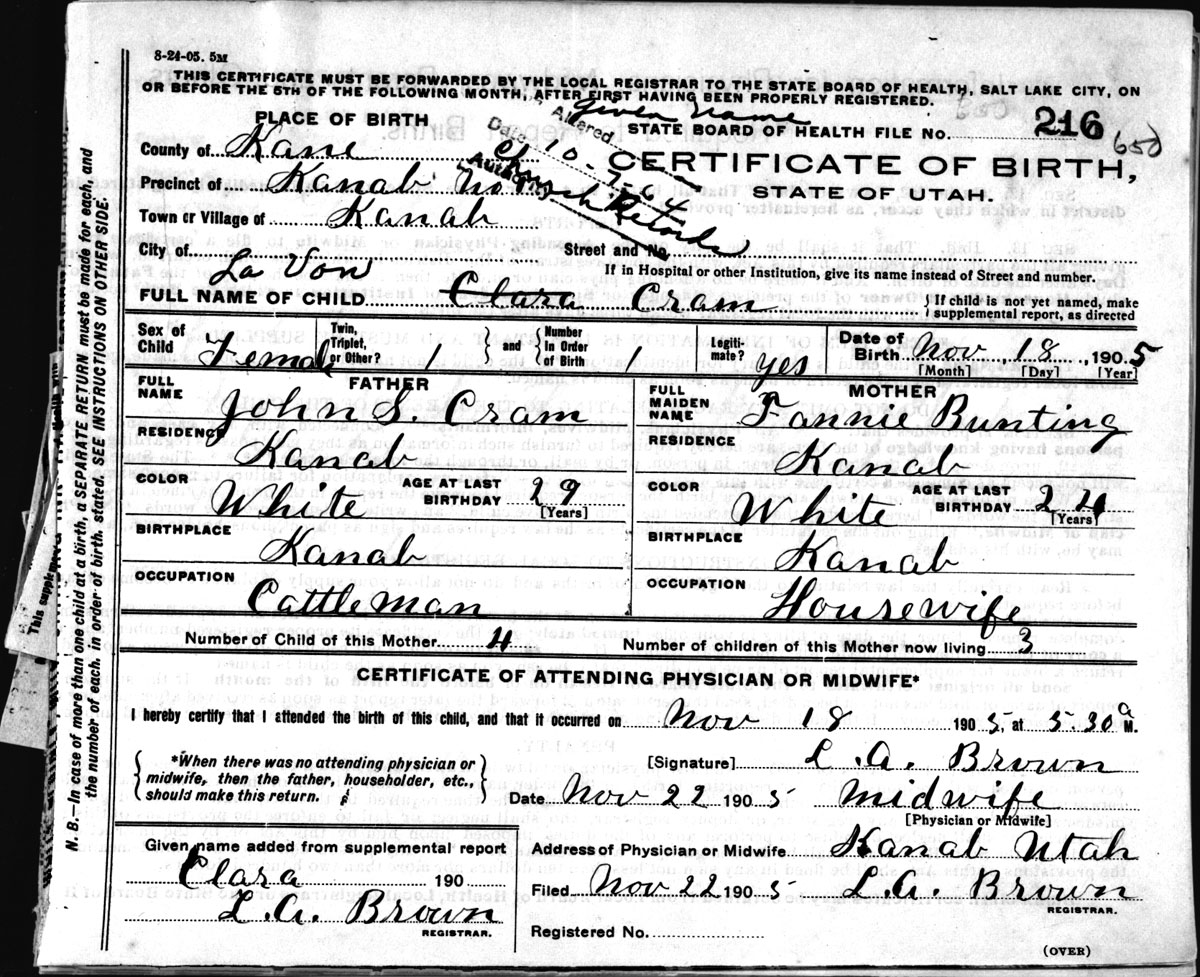 8-24-05. 5M
THIS CERTIFICATE MUST BE FORWARDED BY THE LOCAL REGISTRAR TO THE STATE BOARD OF HEALTH, SALT LAKE CITY, ON
OR BEFORE THE 5TH OF THE FOLLOWING MONTH, AFTER FIRST HAVING BEEN PROPERLY REGISTERED.
PLACE OF BIRTH
Altered Given Name
Date 10-7-64
Authority Church Records
STATE BOARD OF HEALTH FILE NO. 216
650
County of Kane
CERTIFICATE OF BIRTH,
Precinct of Kanab
STATE OF UTAH.
Town or Village of Kanab
City of
Street and No.
If in Hospital or other Institution, give its name instead of Street and number.
La Von
FULL NAME OF CHILD Clara Cram { If child is not yet named, make
supplemental report, as directed
Sex of Child Female Twin, Triplet, or Other? } and { Number in Order of Birth 1 Legiti-mate? yes Date of Birth Nov 18, 1905
[Month] [Day] [Year]
FATHER
FULL NAME John S. Cram
RESIDENCE Kanab
COLOR White AGE AT LAST BIRTHDAY 29
[Years]
BIRTHPLACE
Kanab
OCCUPATION
Cattleman
MOTHER
FULL MAIDEN NAME Fannie Bunting
RESIDENCE Kanab
COLOR White AGE AT LAST BIRTHDAY 24
[Years]
BIRTHPLACE
Kanab
OCCUPATION
Housewife
Number of Child of this Mother 4 Number of children of this Mother now living 3
CERTIFICATE OF ATTENDING PHYSICIAN OR MIDWIFE*
I hereby certify that I attended the birth of this child, and that it occurred on Nov 18 1905, at 5.30 a M.
{ *When there was no attending physician or
midwife, then the father, householder, etc.,
should make this return. }
[Signature] L. A. Brown
Date Nov 22 1905 Midwife
[Physician or Midwife]
Given name added from supplemental report
Clara 190
L. A. Brown
REGISTRAR.
Address of Physician or Midwife Kanab Utah
Filed Nov 22 1905 L. A. Brown
REGISTRAR.
Registered No.
(OVER)
N. B.—In case of more than one child at a birth, a SEPARATE RETURN must be made for each, and
the number of each, in order of birth, stated. SEE INSTRUCTIONS ON OTHER SIDE.
This supplem